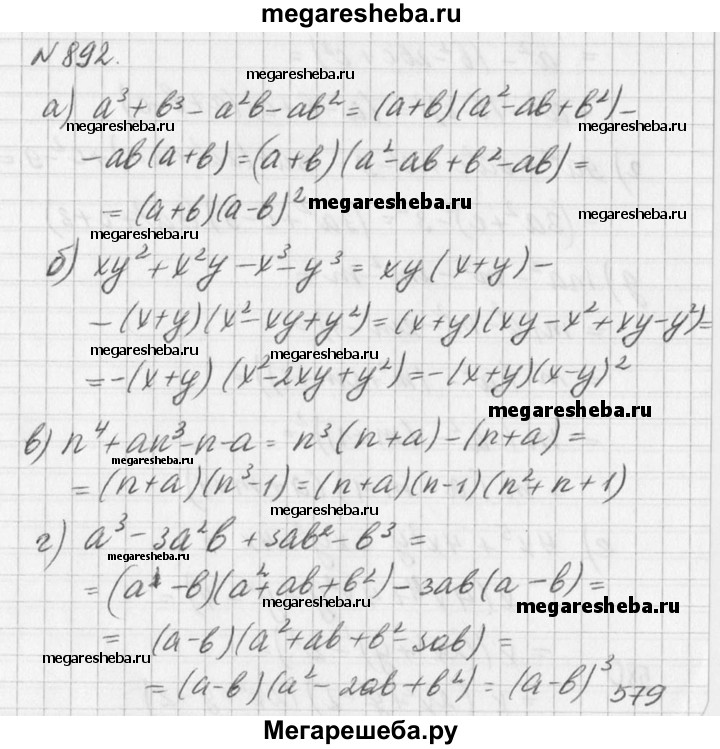 megaresheba.ru
N 892.
megaresheba.ru
а) a³ + b³ - a²b - ab² = (a+b)(a² - ab + b²) -
megaresheba.ru megaresheba.ru
- ab(a+b) = (a+b)(a² - ab + b² - ab) =
= (a+b)(a-b)² megaresheba.ru
megaresheba.ru
б) xy² + x²y - x³ - y³ = xy(x+y) -
megaresheba.ru
- (x+y)(x² - xy + y²) = (x+y)(xy - x² + xy - y²) =
megaresheba.ru megaresheba.ru
= -(x+y)(x² - 2xy + y²) = -(x+y)(x-y)²
megaresheba.ru
в) n⁴ + an³ - n - a = n³(n+a) - (n+a) =
megaresheba.ru
= (n+a)(n³ - 1) = (n+a)(n-1)(n² + n + 1)
г) a³ - 3a²b + 3ab² - b³ =
megaresheba.ru
= (a - b)(a² + ab + b²) - 3ab(a - b) =
megaresheba.ru megaresheba.ru
= (a-b)(a² + ab + b² 3ab) =
megaresheba.ru
= (a-b)(a² - 2ab + b²) = (a-b)³
579
Мегарешеба.ру